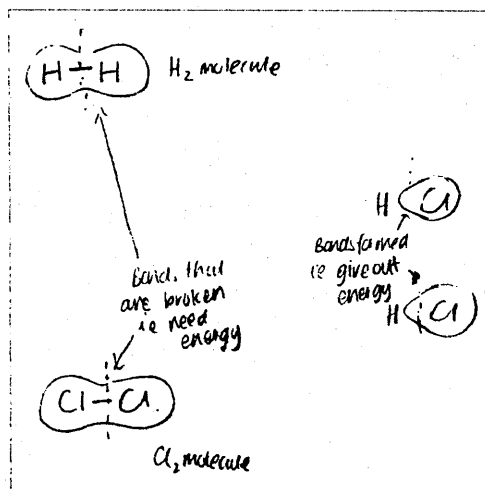 H-H
H₂ molecule
Bonds that
are broken
ie need
energy
Cl-Cl
Cl₂ molecule
H Cl
Bonds formed
ie give out
energy
H Cl